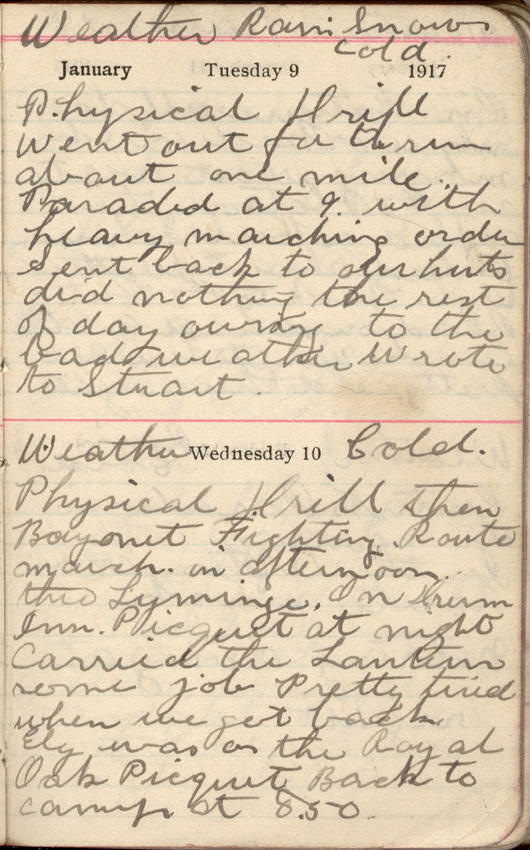 Weather Rain Snow
Cold.
January Tuesday 9 1917
Physical Drill
went out for a run
about one mile.
Paraded at 9. with
heavy marching order
Sent back to our huts
did nothing the rest
of day owing to the
bad weather Wrote
to Stuart.
Weather Wednesday 10 Cold.
Physical Drill then
Bayonet Fighting. Route
march. in afternoon.
thro Lyminge. On Drum
Inn. Picquet at night
Carried the Lantern
some job Pretty tired
when we got back
Ely was on the Royal
Oak Picquet Back to
camp at 8.50.